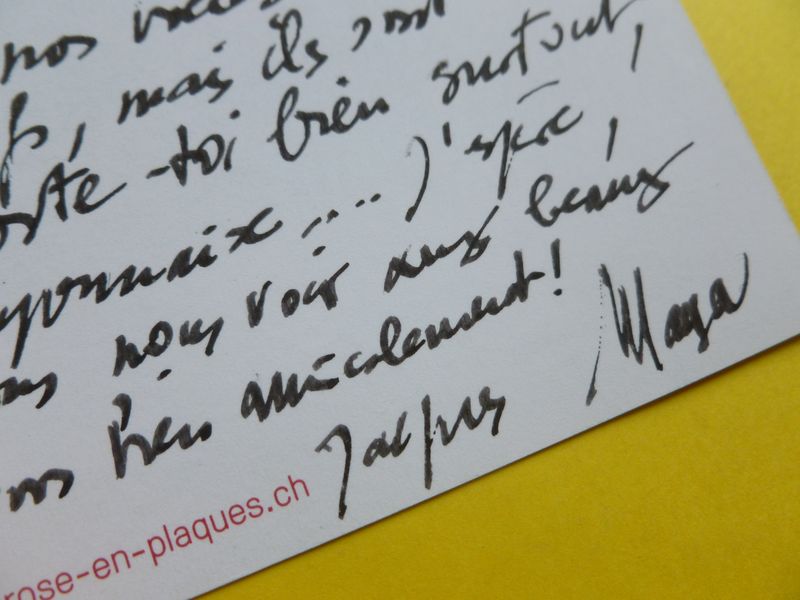 nos
, mais ils sont
-toi bien surtout,
... j'espère,
nous voir aux beaux
bien amicalement!
Jacques Maya
rose-en-plaques.ch